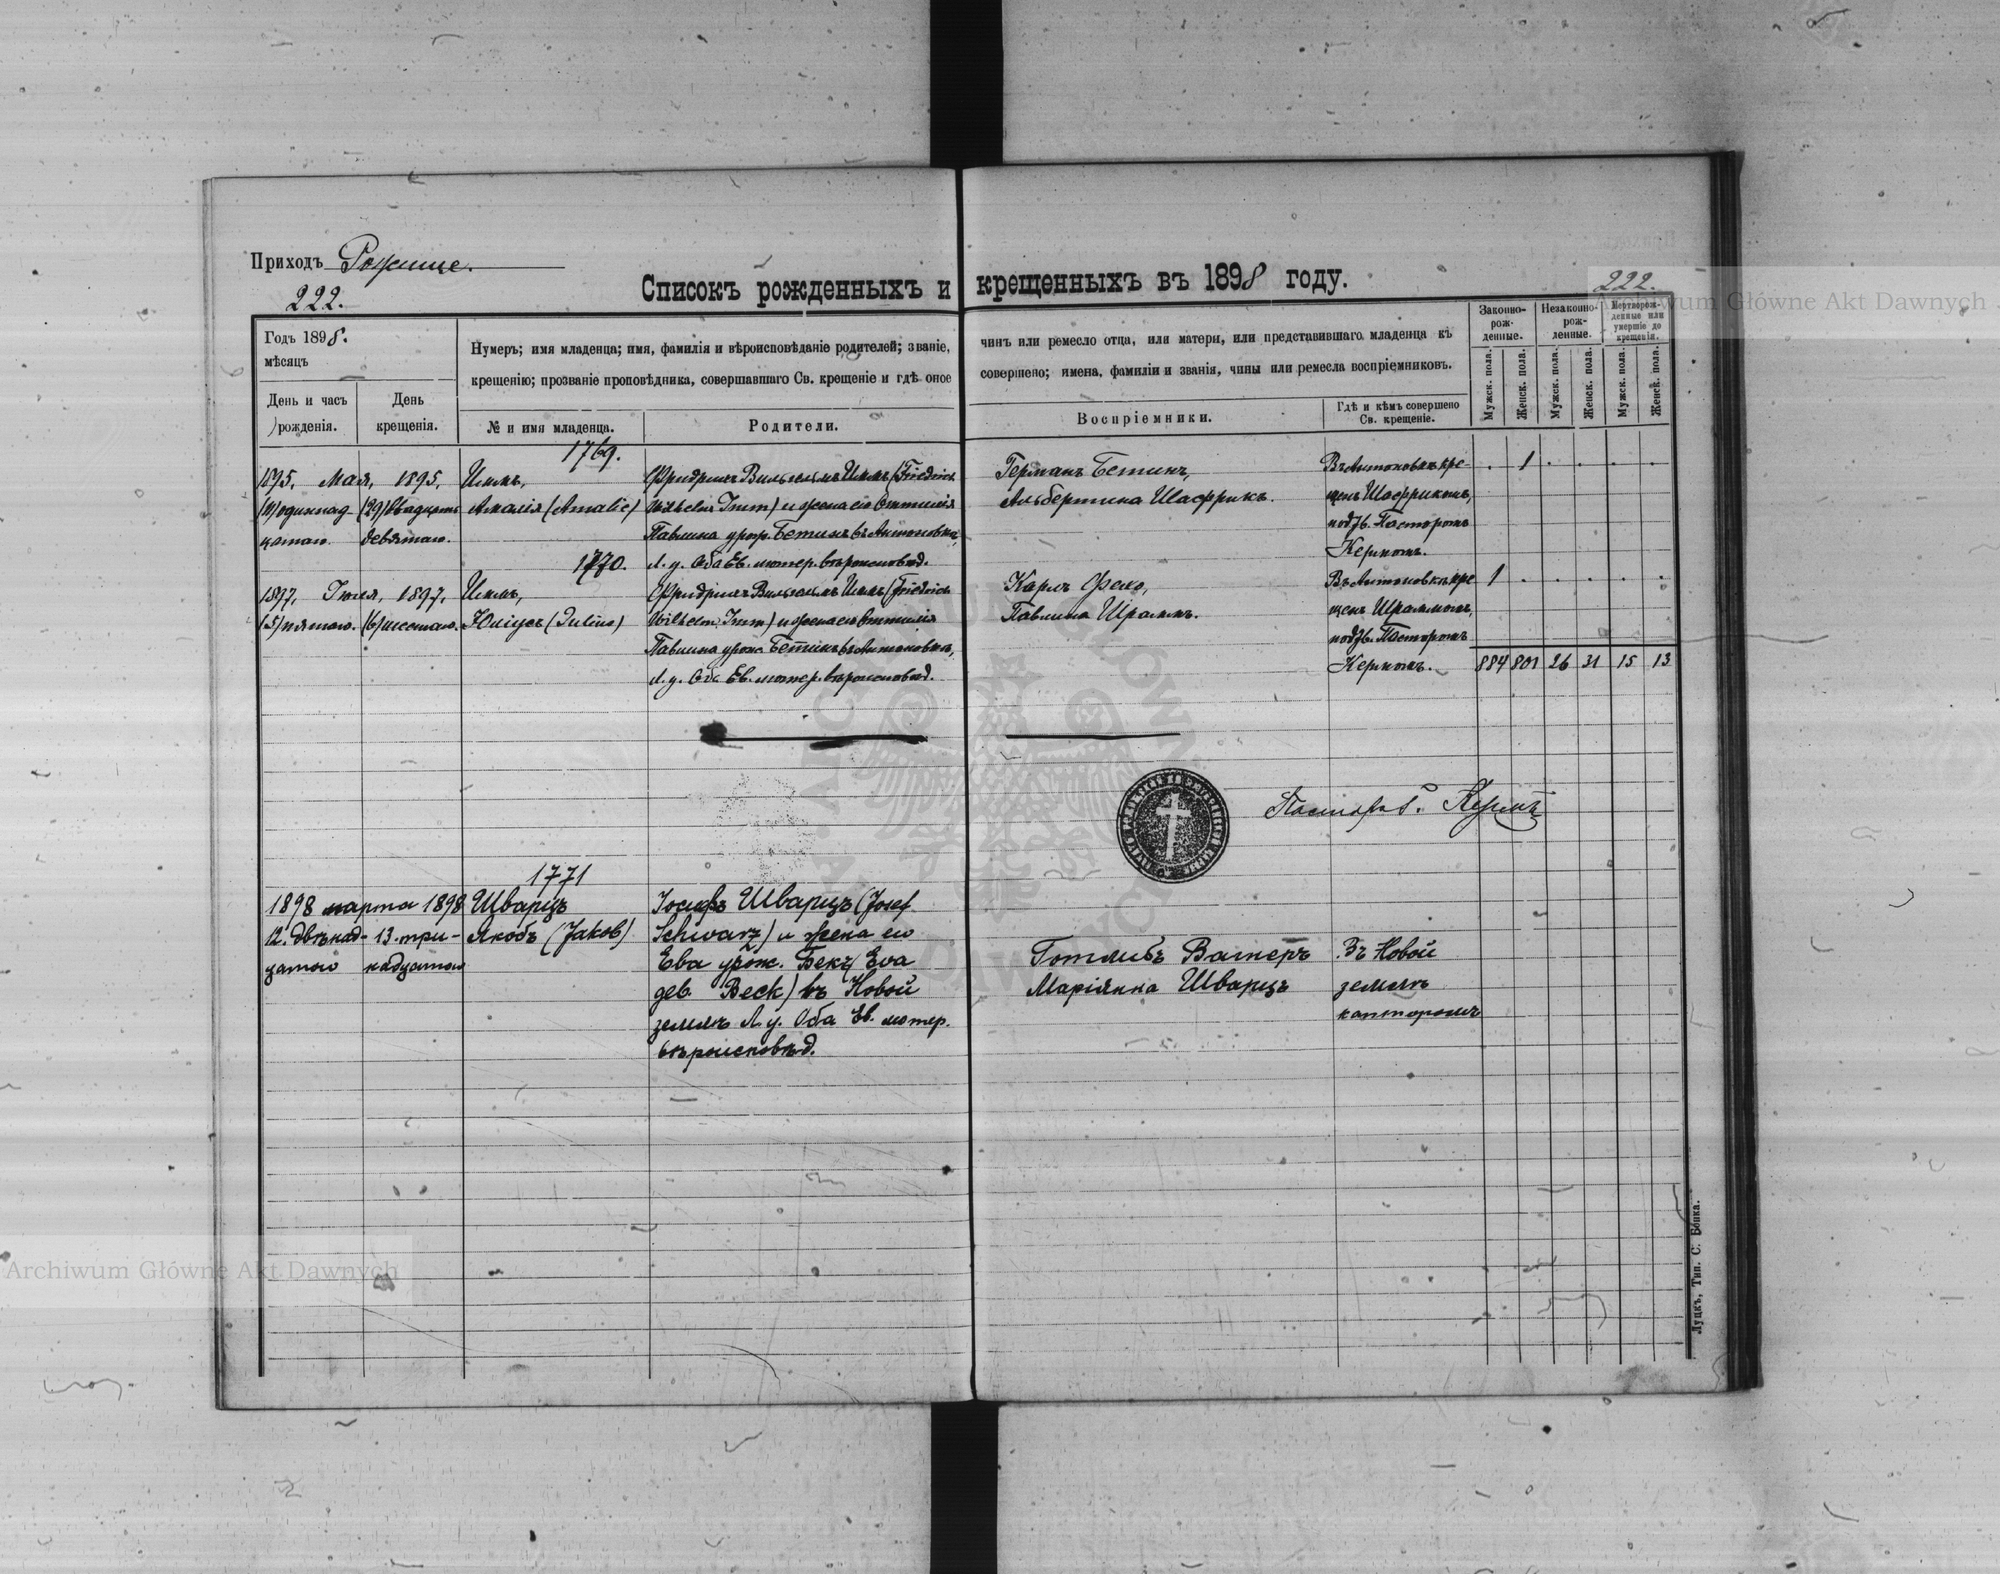 Приходъ Рожище.
222.
Списокъ рожденныхъ и крещенныхъ въ 1898 году.
222.
Archiwum Główne Akt Dawnych
Годъ 1898.
мѣсяцъ
День и часъ рожденія.
День крещенія.
Нумеръ; имя младенца; имя, фамилія и вѣроисповѣданіе родителей; званіе, чинъ или ремесло отца, или матери, или представившаго младенца къ
крещенію; прозваніе проповѣдника, совершавшаго Св. крещеніе и гдѣ оное совершено; имена, фамиліи и званія, чины или ремесла воспріемниковъ.
№ и имя младенца.
Родители.
Воспріемники.
Гдѣ и кѣмъ совершено Св. крещеніе.
Законно-рож-денные.
Незаконно-рож-денные.
Мертворож-денные или умершіе до крещенія.
Мужск. пола.
Женск. пола.
Мужск. пола.
Женск. пола.
Мужск. пола.
Женск. пола.
1769.
1895, Мая, 1895,
(11) одиннад
цатаго.
(29) двадцать
девятаго.
Иммъ,
Амалія (Amalie)
Фридрихъ Вильгельмъ Иммъ (Friedrich
Wilhelm Imm) и жена его Оттилія
Павлина урож. Бетинъ въ Антоновкѣ,
Л. у. Оба Ев. лютер. вѣроисповѣд.
Германъ Бетинъ,
Альбертина Шаффрикъ.
Въ Антоновкѣ кре-
щенъ Шаффрикомъ,
подтв. Пасторомъ
Керномъ.
. 1 . . . .
1770.
1897, Іюля, 1897,
(5) пятаго.
(6) шестаго.
Иммъ,
Юліусъ (Julius)
Фридрихъ Вильгельмъ Иммъ (Friedrich
Wilhelm Imm) и жена его Оттилія
Павлина урож. Бетинъ въ Антоновкѣ,
Л. у. Оба Ев. лютер. вѣроисповѣд.
Карлъ
Павлина Шраммъ.
Въ Антоновкѣ кре
щенъ Шраммомъ,
подтв. Пасторомъ
Керномъ.
1 . . . . .
884 801 26 31 15 13
Пасторъ Кернъ
1771
1898 марта 1898
12. двѣнад-
цатого
13. три-
надцатого
Шварцъ
Якобъ (Jakob)
Іосифъ Шварцъ (Josef
Schwarz) и жена его
Ева урож. Бекъ (Eva
geb. Beck) въ Новой
землѣ Л. у. Оба Ев. лютер.
вѣроисповѣд.
Готлибъ Вагнеръ
Маріянна Шварцъ
Въ Новой
землѣ
канторомъ
Archiwum Główne Akt Dawnych
Луцкъ, Тип. С. Бонка.